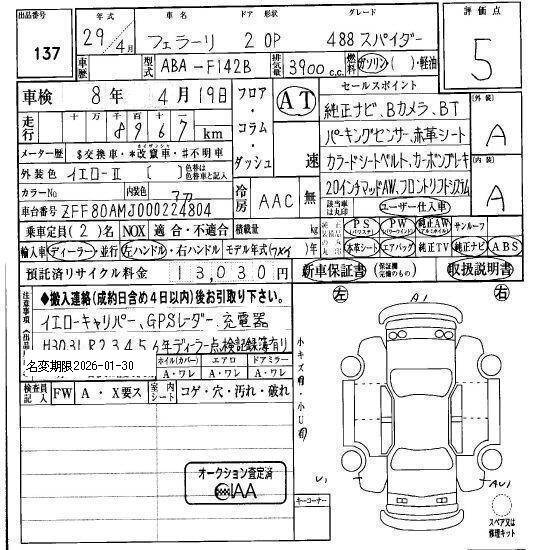 出品番号 137
年式 29年 4月 車名 フェラーリ ドア 形状 2 OP グレード 488 スパイダー
評価点 5
車歴 型式 ABA-F142B 排気量 3900 c.c. 燃料 ガソリン ( )・軽油
車検 8年 4月 19日 フロア・コラム・ダッシュ AT 速
セールスポイント
走行 十 万 千 百 十 一 89167 km
純正ナビ、Bカメラ、BT
メーター歴 $交換車・*改竄車・#不明車
パーキングセンサー、赤革シート
外装色 イエローII 色替は色替車と記入
カラードシートベルト、カーボンブレーキ
カラーNo 内装色 アカ 冷房 AAC 無
20インチマッドAW、フロントリフトシステム
外装 A
内装 A
車台番号 ZFF80AMJ000224804
該当車は丸印 ユーザー仕入車
乗車定員 (2) 名 NOX 適合・不適合 積載量 kg
純正装備品の丸印 PS (パワステ) PW (パワーウィンド) 純正AW (アルミホイル) サンルーフ
輸入車 ディーラー・並行 左ハンドル・右ハンドル モデル年式 ( )年
本革シート エアバッグ 純正TV 純正ナビ ABS
預託済リサイクル料金 13,030 円
新車保証書 (保証欄完備のもの) 取扱説明書
注意事項 (出品店) ◆搬入連絡 (成約日含め4日以内) 後お引取り下さい。
イエローキャリパー、GPSレーダー、充電器
H30 31 R2 3 4 5 6年ディーラー点検記録簿有り
名変期限2026-01-30
ホイル(カバー) エアロ ドアミラー
A・ワレ A・ワレ A・ワレ
検査員記入 FW A・X要ス 室内シート コゲ・穴・汚れ・破れ
オークション査定済
JAAA
小キズ有・小U有
左 右
A1
U1
AU1
キーコーナー
スペア又は修理キット